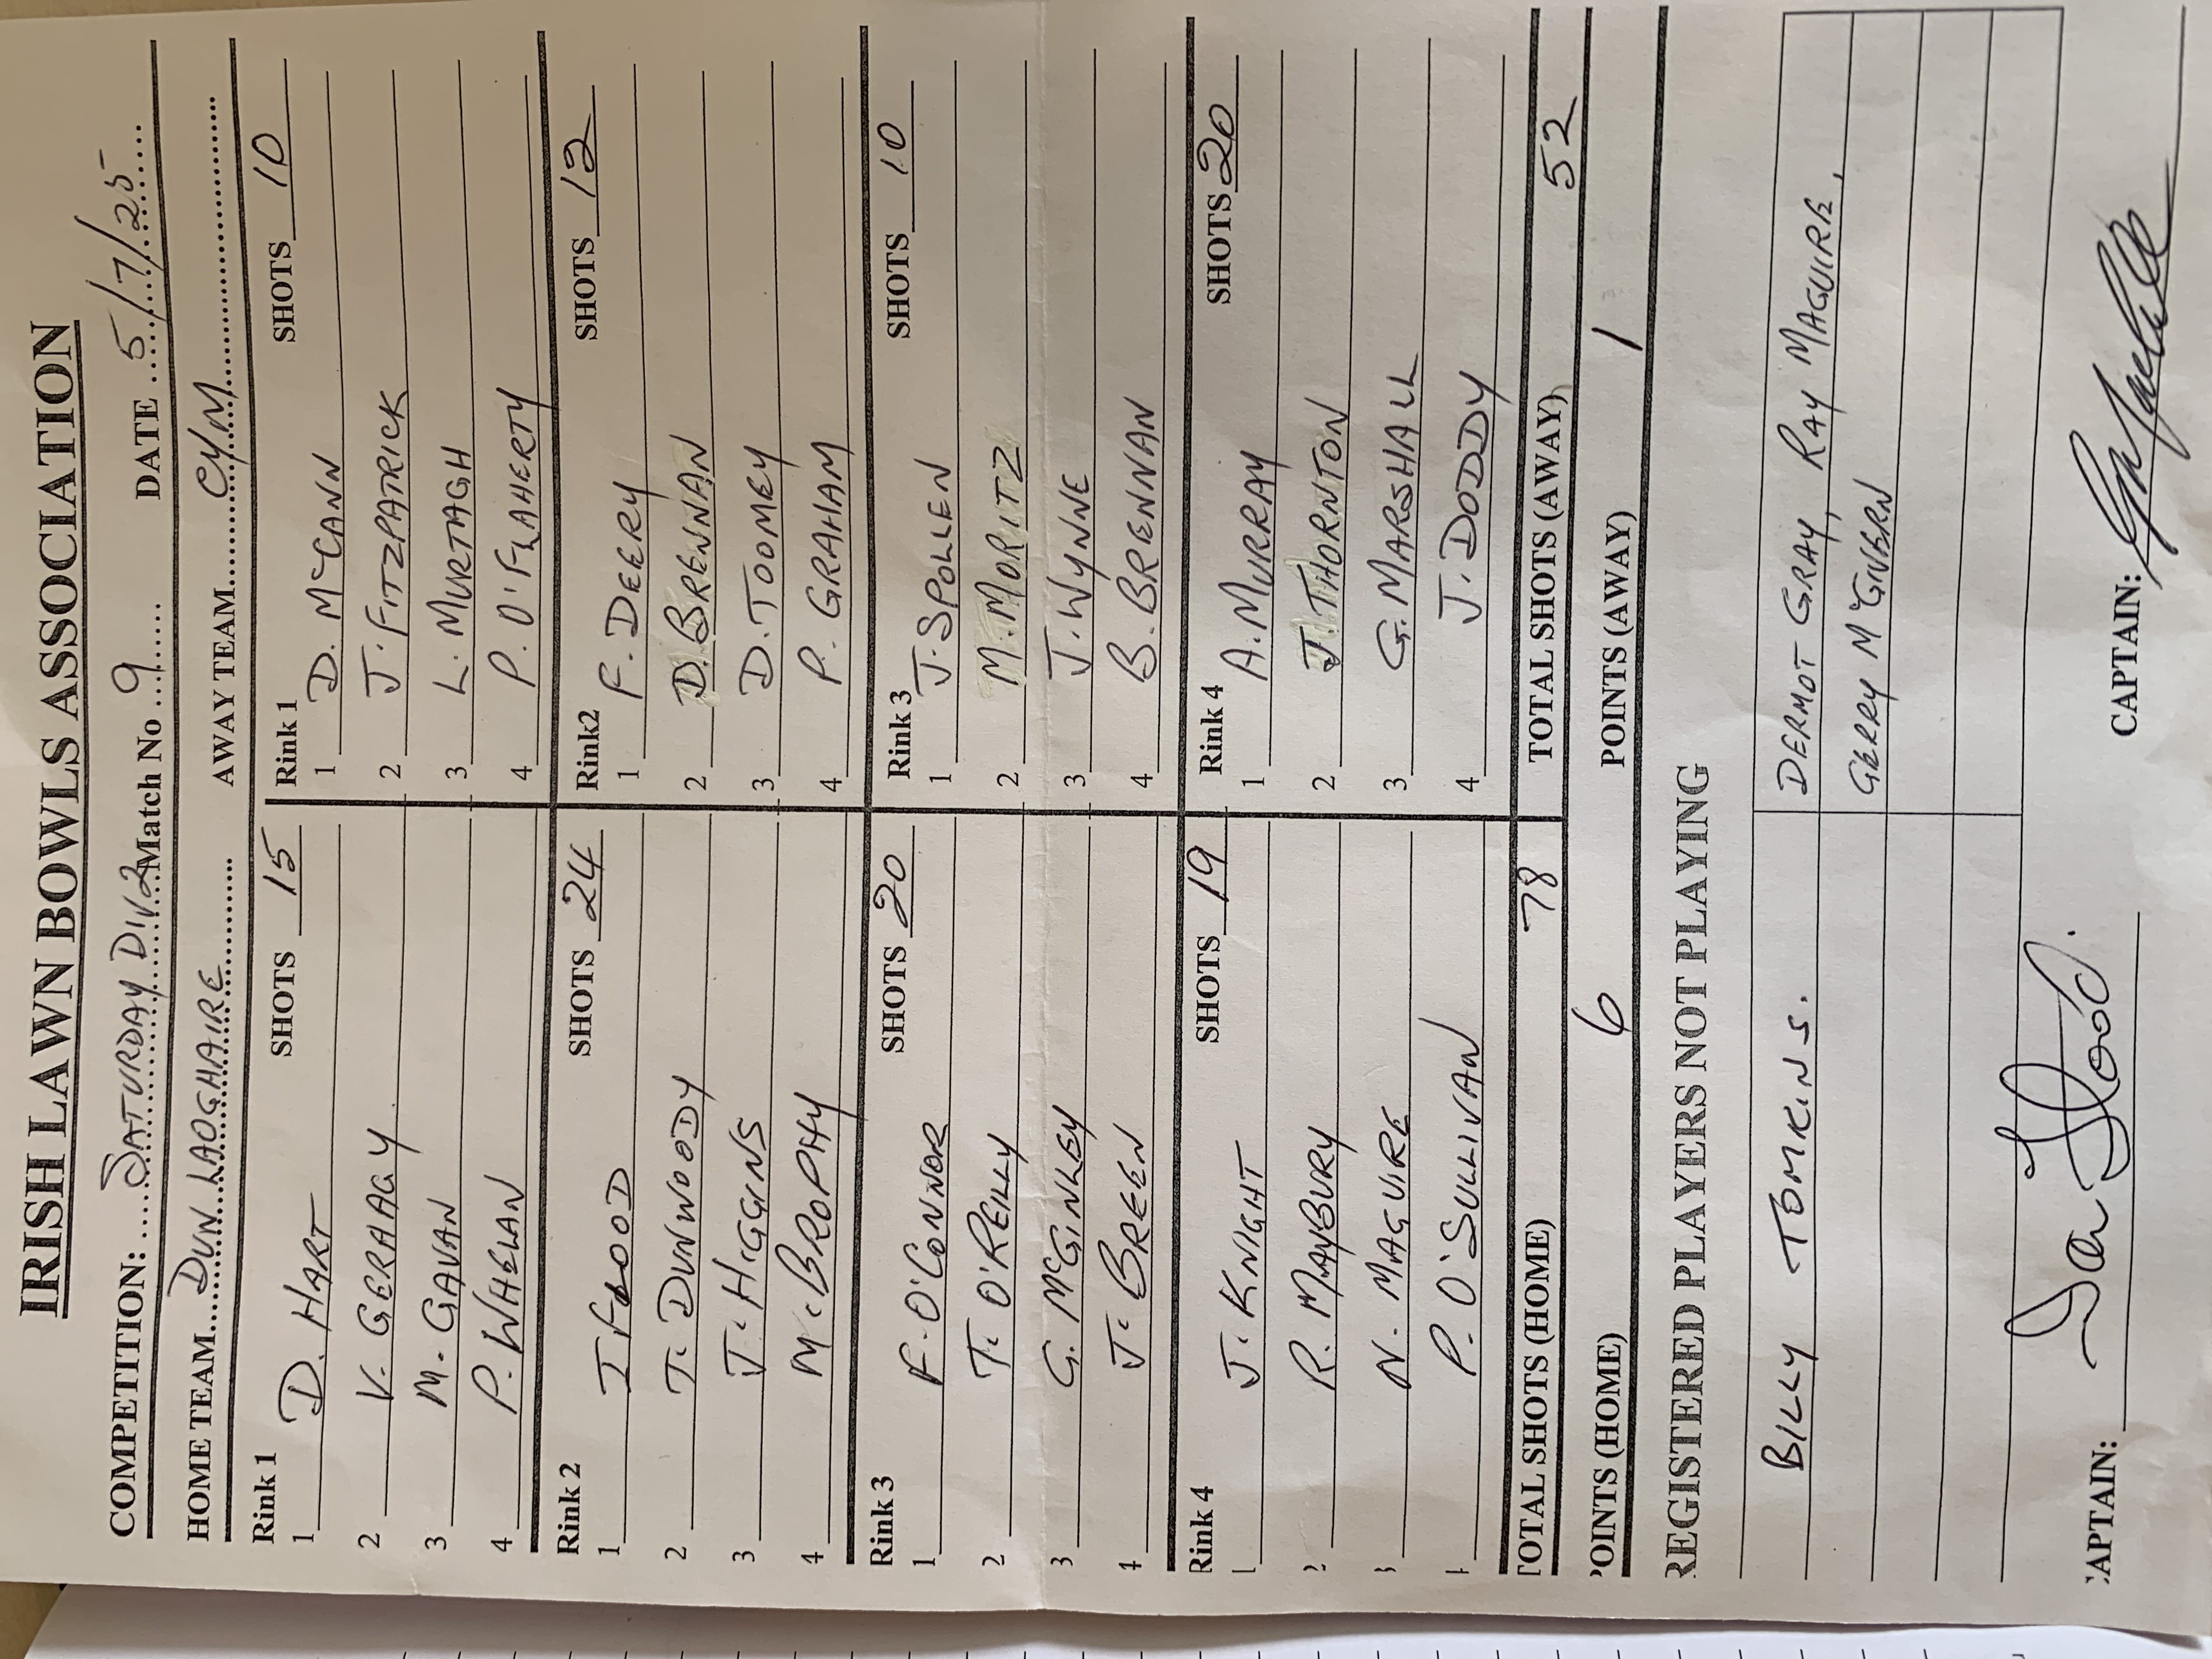 IRISH LAWN BOWLS ASSOCIATION
COMPETITION: SATURDAY DIV 2 Match No 9 DATE 5/7/25
HOME TEAM DUN LAOGHAIRE AWAY TEAM CYM
Rink 1 SHOTS 15 Rink 1 SHOTS 10
1 D. HART 1 D. McCANN
2 V. GERHAGY 2 J. FITZPATRICK
3 M. GAVAN 3 L. MURTAGH
4 P. WHELAN 4 P. O'FLAHERTY
Rink 2 SHOTS 24 Rink2 SHOTS 12
1 I FLOOD 1 F. DEERY
2 T. DUNWOODY 2 D. BRENNAN
3 J. HIGGINS 3 D. TOOMEY
4 M. BROPHY 4 P. GRAHAM
Rink 3 SHOTS 20 Rink 3 SHOTS 10
1 F. O'CONNOR 1 J. SPOLLEN
2 T. O'REILLY 2 M. MORITZ
3 G. McGINLEY 3 J. WYNNE
4 J. BREEN 4 B. BRENNAN
Rink 4 SHOTS 19 Rink 4 SHOTS 20
1 J. KNIGHT 1 A. MURRAY
2 R. MAYBURY 2 J. THORNTON
3 N. MAGUIRE 3 G. MARSHALL
4 P. O'SULLIVAN 4 J. DODDY
TOTAL SHOTS (HOME) 78 TOTAL SHOTS (AWAY) 52
POINTS (HOME) 6 POINTS (AWAY) 1
REGISTERED PLAYERS NOT PLAYING
BILLY TOMKINS. DERMOT GRAY, RAY MAGUIRE,
GERRY McGIVERN
CAPTAIN: CAPTAIN: